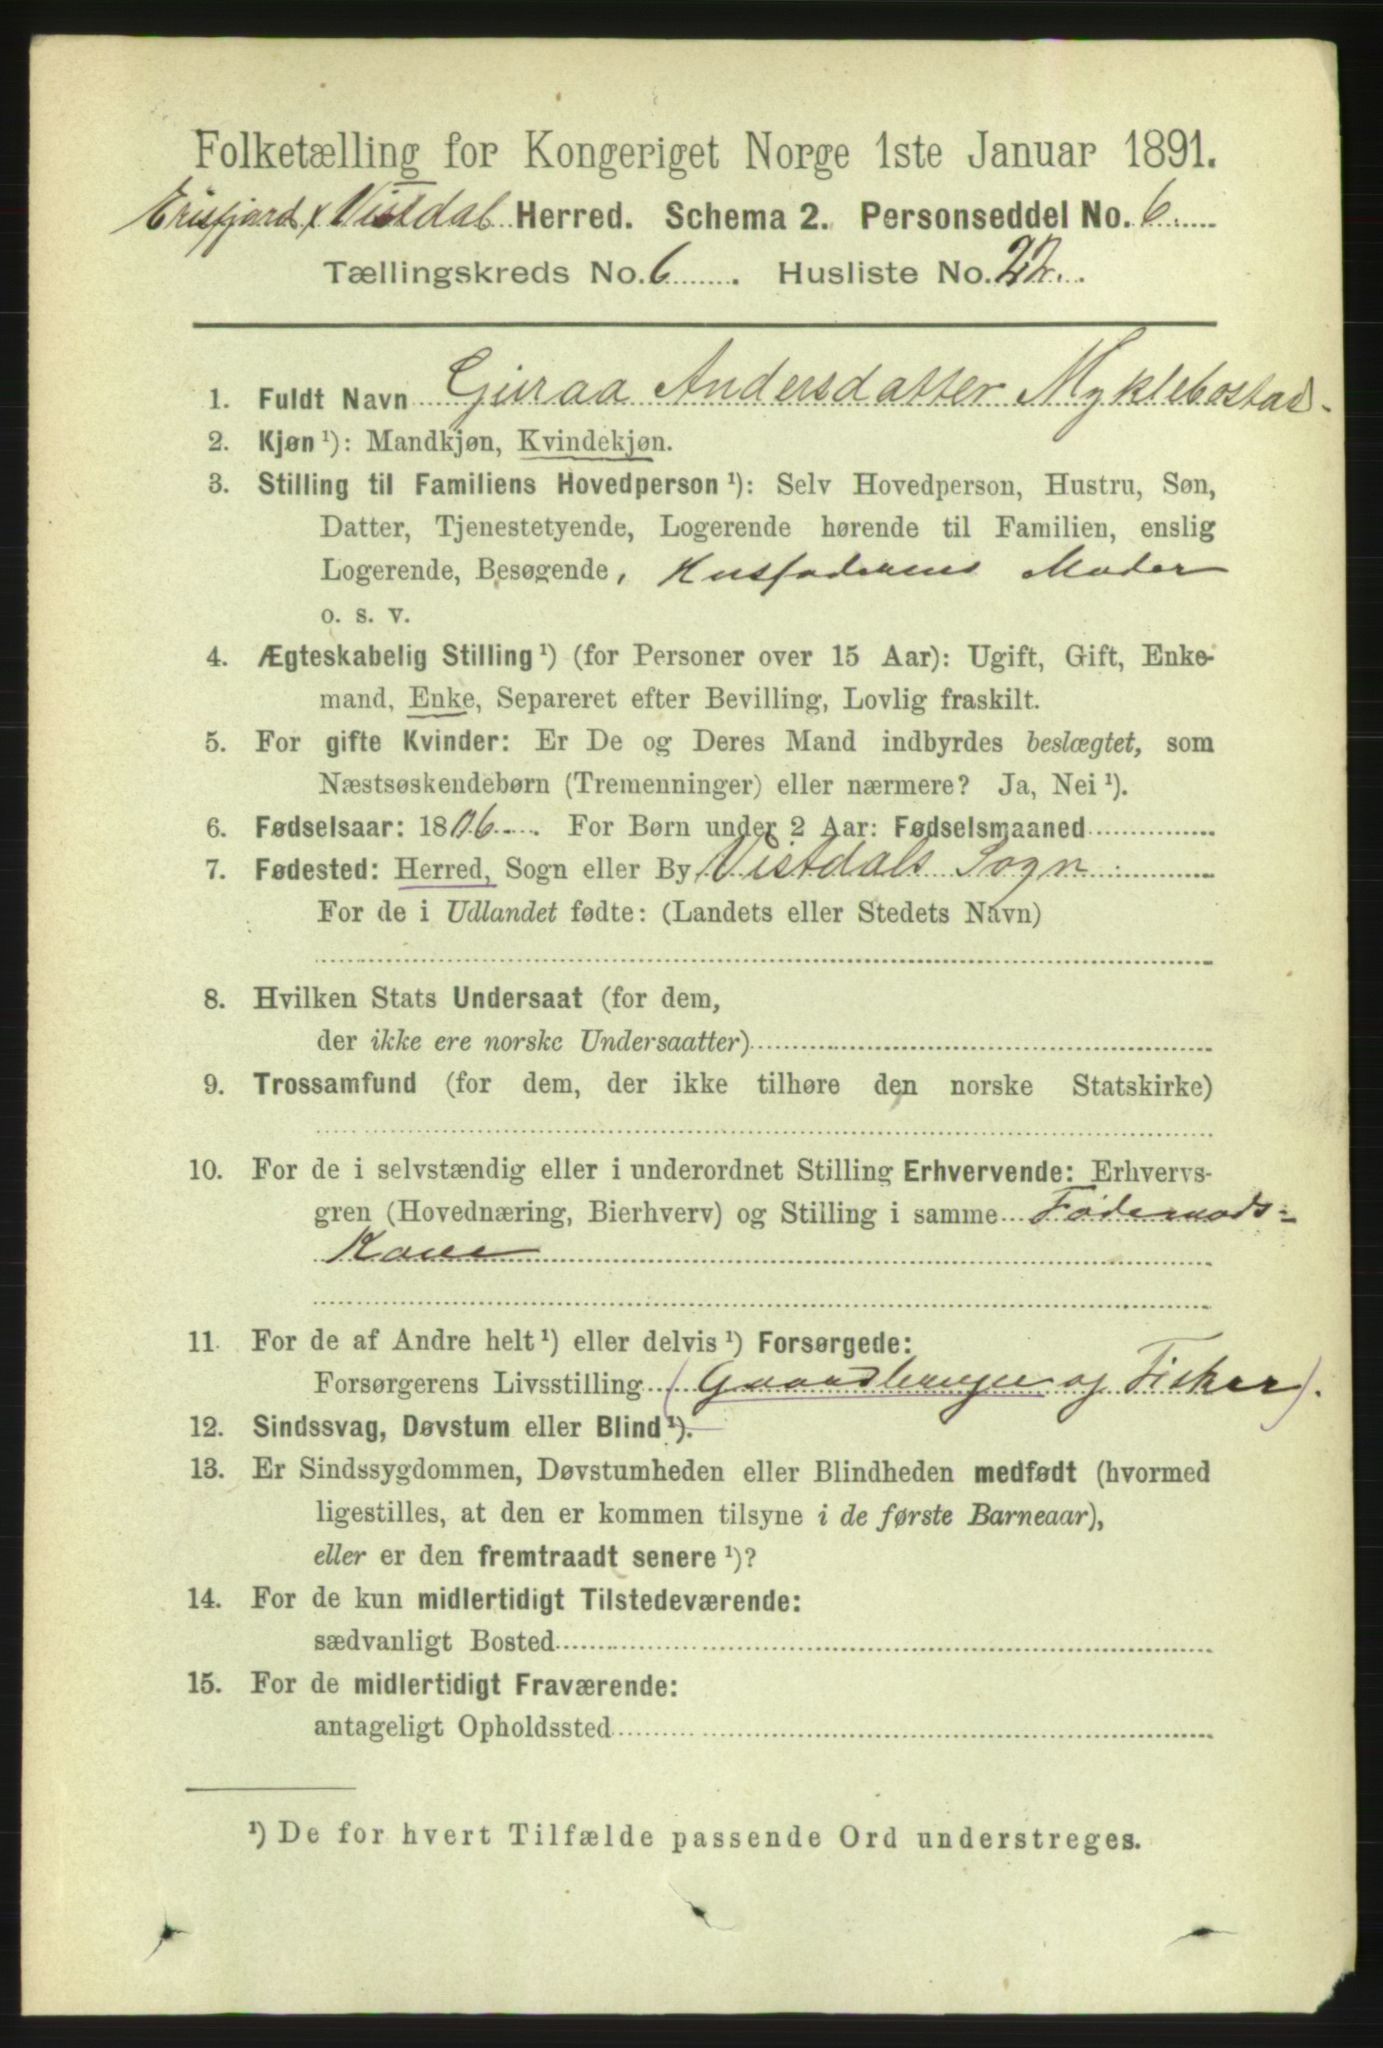 Folketælling for Kongeriget Norge 1ste Januar 1891.
Erisfjord & Vistdal Herred. Schema 2. Personseddel No. 6
Tællingskreds No. 6. Husliste No. 22.
1. Fuldt Navn Guraa Andersdatter Myklebostad.
2. Kjøn ¹): Mandkjøn, Kvindekjøn.
3. Stilling til Familiens Hovedperson ¹): Selv Hovedperson, Hustru, Søn,
Datter, Tjenestetyende, Logerende hørende til Familien, enslig
Logerende, Besøgende, Husfaderens Moder
o. s. v.
4. Ægteskabelig Stilling ¹) (for Personer over 15 Aar): Ugift, Gift, Enke-
mand, Enke, Separeret efter Bevilling, Lovlig fraskilt.
5. For gifte Kvinder: Er De og Deres Mand indbyrdes beslægtet, som
Næstsøskendebørn (Tremenninger) eller nærmere? Ja, Nei ¹).
6. Fødselsaar: 1806. For Børn under 2 Aar: Fødselsmaaned
7. Fødested: Herred, Sogn eller By Vistdals Sogn
For de i Udlandet fødte: (Landets eller Stedets Navn)
8. Hvilken Stats Undersaat (for dem,
der ikke ere norske Undersaatter)
9. Trossamfund (for dem, der ikke tilhøre den norske Statskirke)
10. For de i selvstændig eller i underordnet Stilling Erhvervende: Erhvervs-
gren (Hovednæring, Bierhverv) og Stilling i samme Føderaads-
Kone
11 For de af Andre helt ¹) eller delvis ¹) Forsørgede:
Forsørgerens Livsstilling (Gaardbruger og Fisker).
12. Sindssvag, Døvstum eller Blind ¹).
13. Er Sindssygdommen, Døvstumheden eller Blindheden medfødt (hvormed
ligestilles, at den er kommen tilsyne i de første Barneaar),
eller er den fremtraadt senere ¹)?
14. For de kun midlertidigt Tilstedeværende:
sædvanligt Bosted
15. For de midlertidigt Fraværende:
antageligt Opholdssted
¹) De for hvert Tilfælde passende Ord understreges.